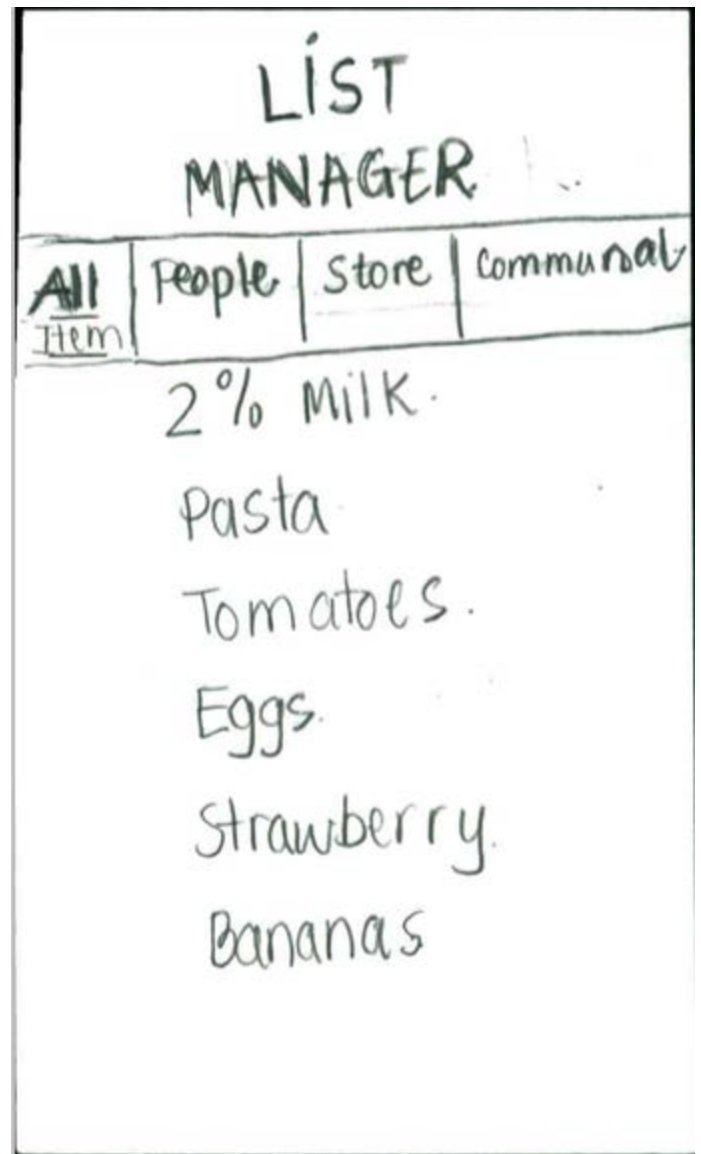 LIST
MANAGER
All Item | People | Store | Communal
2% Milk.
Pasta
Tomatoes.
Eggs.
Strawberry.
Bananas